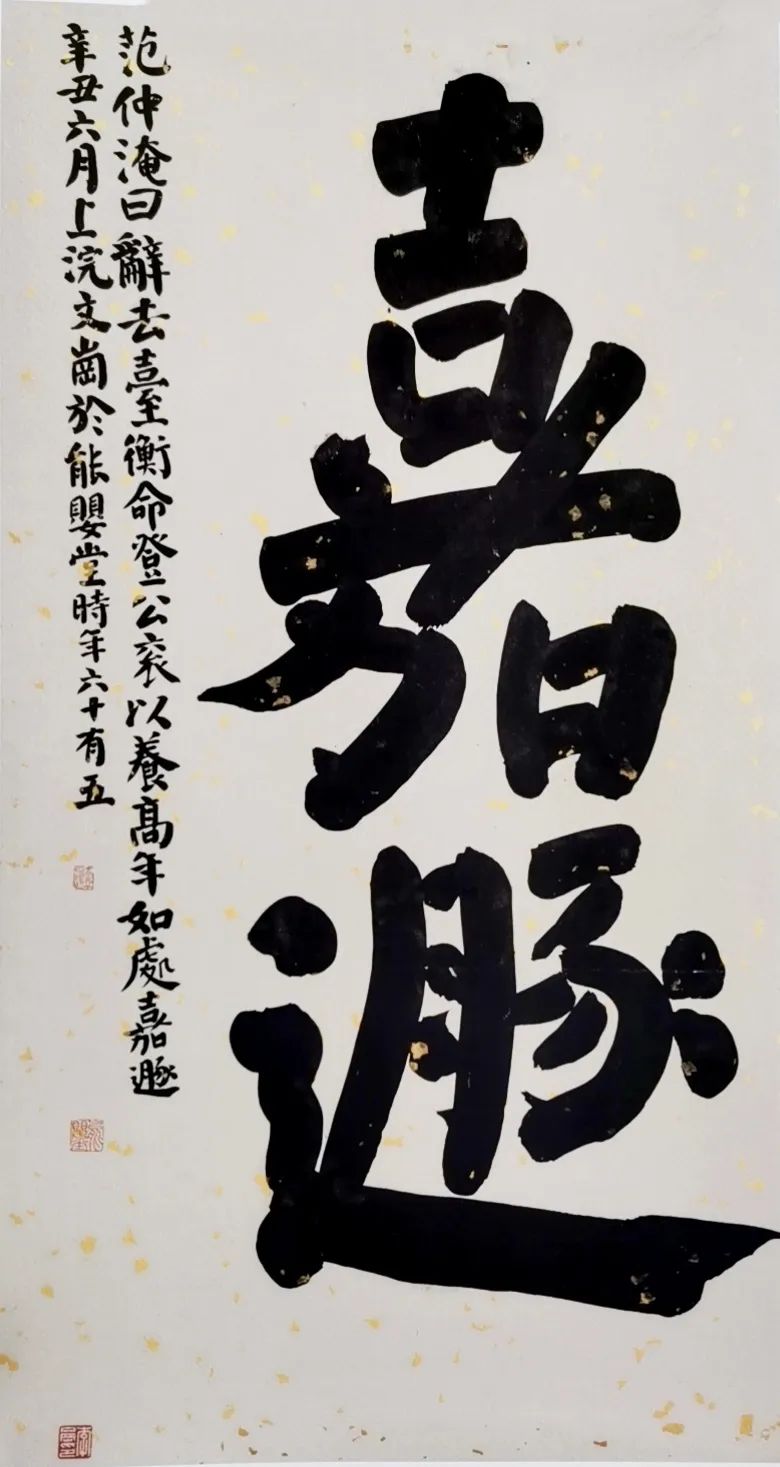 嘉遯
范仲淹曰辭去臺衡命登公袞以養高年如處嘉遯
辛丑六月上浣文崗於能嬰堂時年六十有五